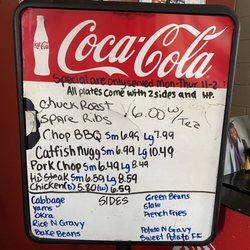 Coca-Cola
Coca-Cola
Special are only served Mon-Thur 11-2
All plates come with 2 sides and HP.
Chuck Roast
Spare Ribs
6.00 w/ Tea
Chop BBQ Sm 6.99 Lg 7.99
Catfish Nugg Sm 6.99 Lg 10.49
Pork Chop Sm 6.99 Lg 8.49
HB Steak Sm 6.59 Lg 8.59
Chicken (D) 5.80 (W) 6.59
SIDES
Cabbage
yams
okra
Rice N Gravy
Bake Beans
Green Beans
Slaw
French Fries
Potato N Gravy
Sweet Potato FF